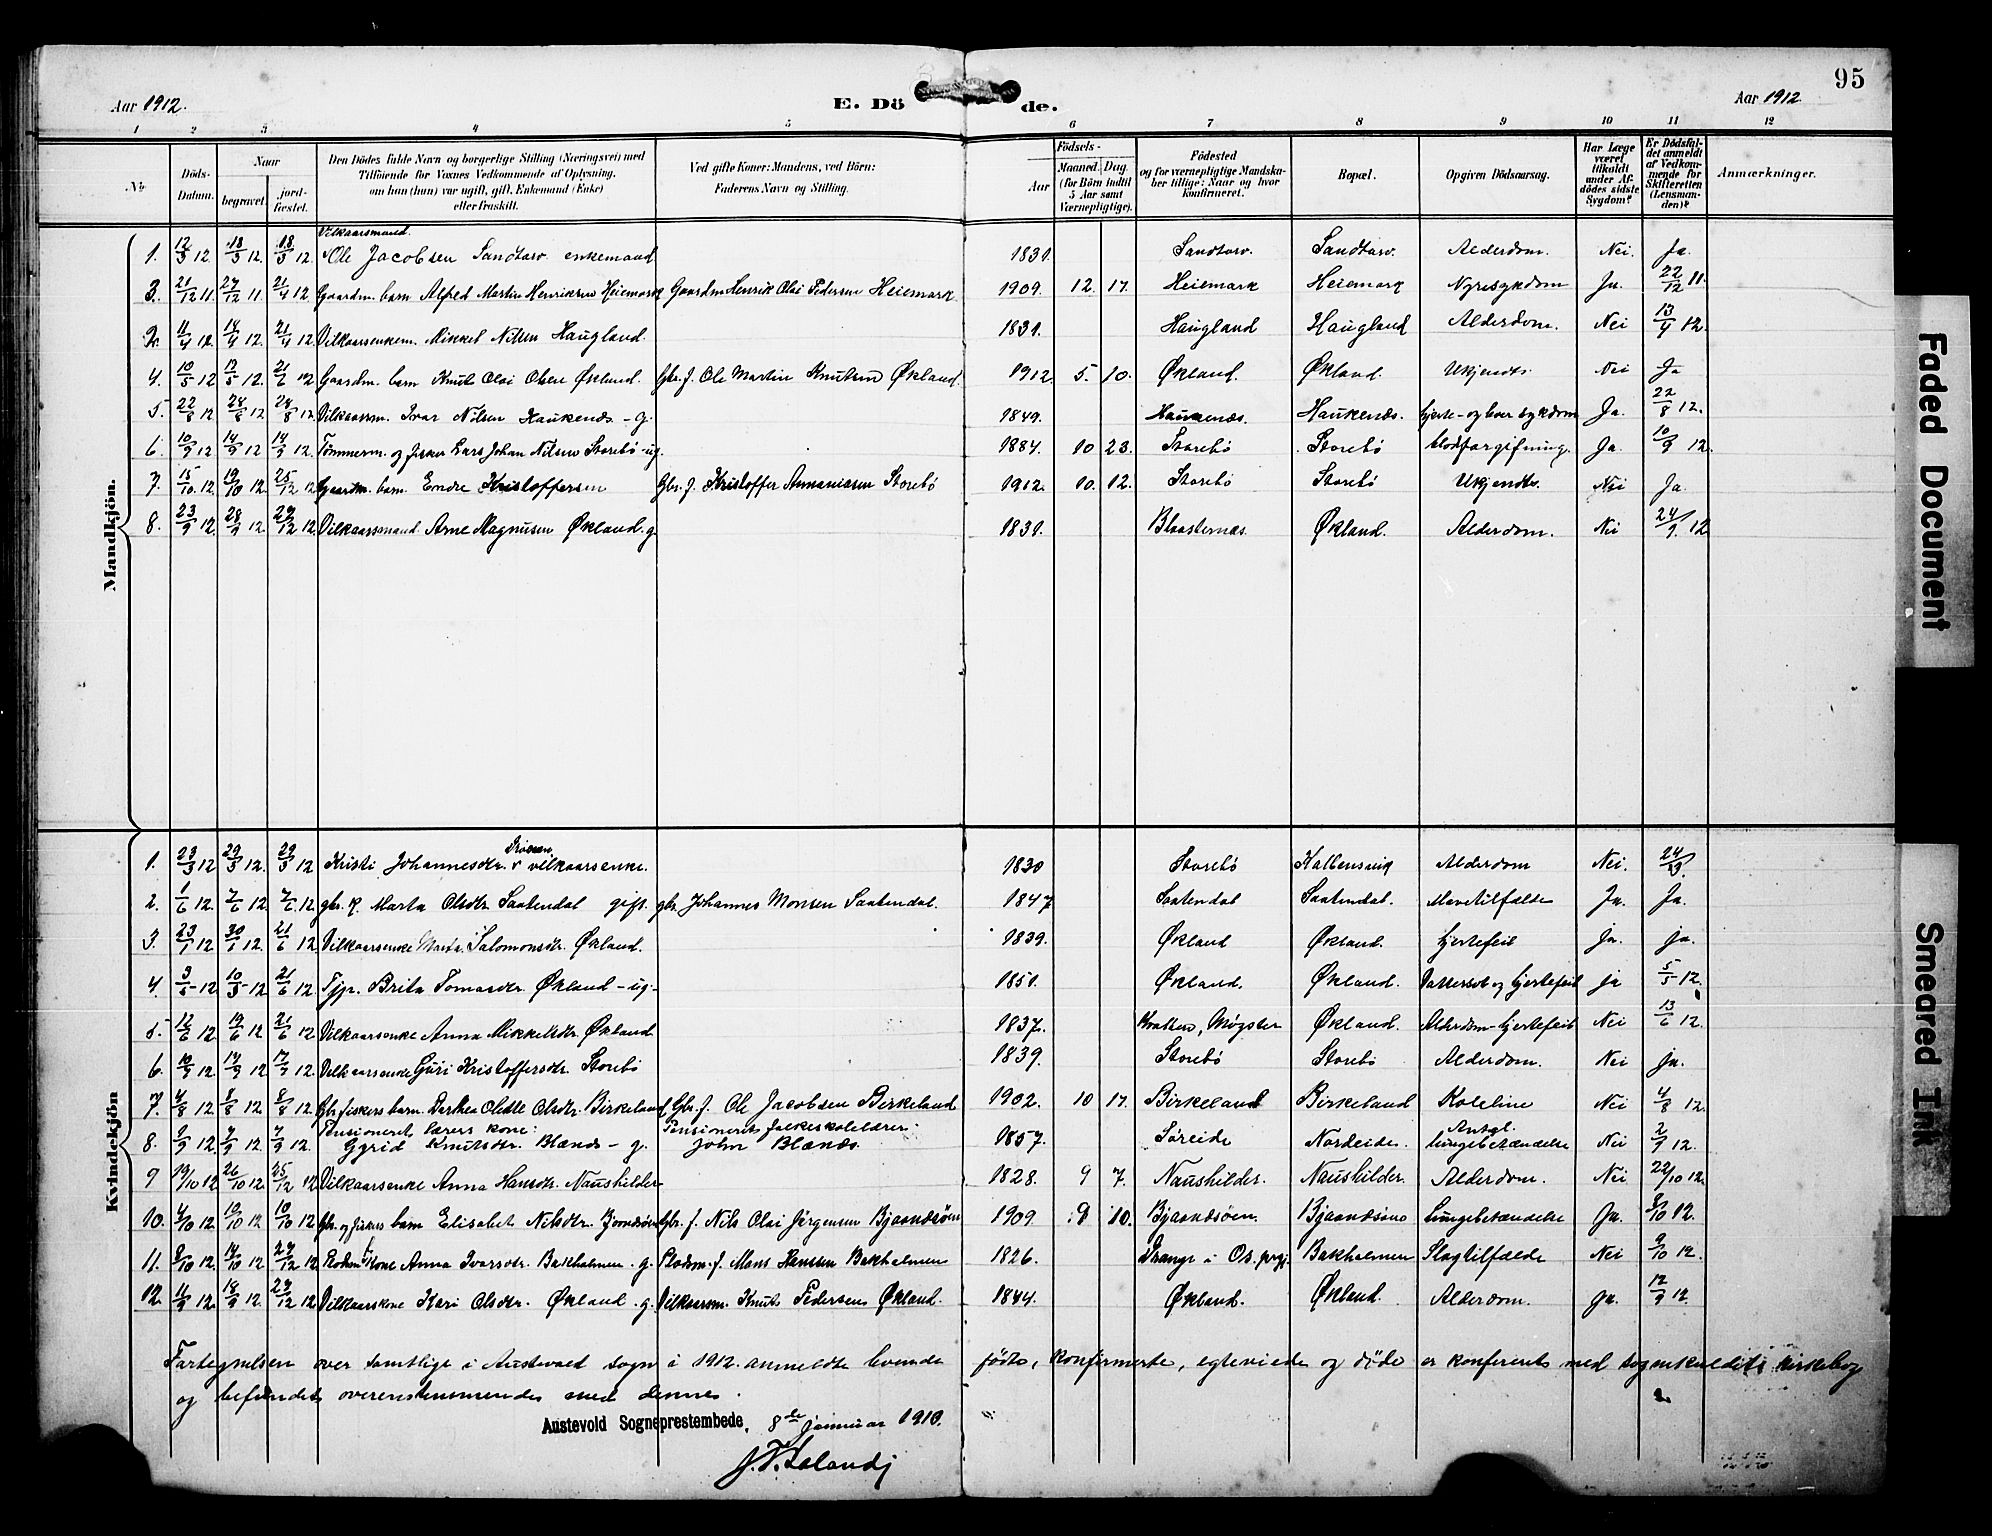 95
Aar 1912.
E. Dö de.
Aar 1912
1 2 3 4 5 6 7 8 9 10 11 12
No.
Döds-Datum.
Naar
begravet.
jord-fæstet.
Den Dödes fulde Navn og borgerlige Stilling (Næringsvei) med
Tilföiende for Voxnes Vedkommende af Oplysning,
om han (hun) var ugift, gift, Enkemand (Enke)
eller fraskilt.
Ved gifte Koner: Mandens, ved Börn:
Faderens Navn og Stilling.
Födsels-
Aar
Maaned. Dag.
(for Börn indtil
5 Aar samt
Værnepligtige).
Födested
og for værnepligtige Mandska-
ber tillige: Naar og hvor
konfirmeret.
Bopæl.
Opgiven Dödsaarsag.
Har Læge
været
tilkaldt
under Af-
dödes sidste
Sygdom?
Er Dödsfal-
det anmeldt
af Vedkom-
mende for
Skifteretten
(Lensman-
den)?
Anmærkninger.
Mandkjön.
Vilkaarsmand.
1. 12/3 12 18/3 12. 18/3 12. Ole Jacobsen Sandtorv enkemand 1831. Sandtorv. Sandtorv. Alderdom. Nei. Ja.
3. 21/12 11. 27/12 11. 21/4 12 Gaardm. barn Alfred Martin Henriksen Heiemark Gaardm Henrik Olai Pedersen Heiemark. 1909. 12. 17. Heiemark Heiemark Nyresykdom Ja. 22/12 11.
2. 11/4 12 14/4 12. 21/4 12. Vilkaarsenkem. Mikkel Nilsen Haugland. 1831. Haugland Haugland Alderdom. Nei 13/4 12.
4. 10/5 12 17/5 12. 21/6 12 Gaardm. barn Knut Olai Olsen Økland. Gbr. f. Ole Martin Knutsen Økland. 1912. 5. 10. Økland. Økland. Ukjendt. Nei Ja
5. 22/8 12 28/8 12 28/8 12 Vilkaarsm. Ivar Nilsen Haukenæs - g. 1849. Haukenæs. Haukenæs. hjerte- og lever sykdom Ja. 22/8 12.
6. 10/9 12 14/9 12 14/9 12. Tømmerm. og fisker Lars Johan Nilsen Storebø - ug. 1884. 10 23. Storebø Storebø blodforgifning. Ja. 10/9 12.
7. 15/10 12. 19/10 12. 25/12 12 Gaardm. barn. Endre Kristoffersen Gbr. f. Kristoffer Annaniasen Storebø 1912. 10. 12. Storebø Storebø. Ukjendt. Nei Ja.
8. 23/9 12. 28/9 12 29/12 12. Vilkaarsmand Arne Magnusen Økland. g. 1831. Blaasternæs. Økland. Alderdom. Nei 24/9 12
Kvindekjön
1. 23/3 12 29/3 12. 29/3 12 Kristi Johannesdtr. vilkaarsenke. 1830 Storebø Alderdom Nei. 24/3.
2. 1/6 12. 7/6 12. 7/6 12 gbr. k. Marta Olsdtr Saatendal gift. gbr. Johannes Monsen Saatendal. 1847 Saatendal Saatendal. Mavetilfælde Ja. Ja.
3. 23/1 12 30/1 12. 21/6 12. Vilkaarsenke Marta Salomonsdtr. Økland. 1839. Økland Økland. hjertefeil ja. ja.
4. 3/5 12 10/5 12 21/6 12 Tjp. Brita Tomasdtr Økland - ug - 1851. Økland. Økland. Vattersot og hjertefeil ja 5/5 12.
5. 12/6 12. 19/6 12 21/6 12 Vilkaarsenke Anna Mikkelsdtr. Økland 1837. Kvalten, Møgster Økland. Alderdom - hjertefeil Nei 13/6 12.
6. 12. 12 12 Vilkaarsenke Guri Kristoffersdtr. Storebø 1839. Storebø Storebø Alderdom. Nei Ja.
7. 4/8 12 8/8 12 8/8 12. Gbr. fiskers barn. Olsdtr. Birkeland Gbr. f. Ole Jacobsen Birkeland 1902. 10 17. Birkeland Birkeland Koleline Nei 4/8 12.
8. 2/9 12. 7/9 12. 7/9 12. Pensioneret lærers kone: Gyrid Knutsdtr. Blænes - g. Pensioneret folkeskolelærer: John Blænes. 1857. Søreide Nordeide. Antgl. lungebetændelse Nei 2/9 12.
9 19/10 12 26/10 12 25/12 12 Vilkaarsenke Anna Hansdtr. Naushilder 1828. 9 7. Naushilder. Naushilder. Alderdom. Nei 22/10 12.
10. 4/10 12. 10/10 12 10/10 12 Gbr. og fiskers barn Elisabet Nilsdtr. Bjørndsøen Gbr. f. Nils Olai Jørgensen Bjaandsöen 1909 9 10. Bjaandsøen. Bjaandsøen Lungebetændelse Ja. 8/10 12.
11. 9/10 12 14/10 12 29/12 12 kone Anna Ivarsdtr. Bakholmen. g. Plodsm. f. Mons Hanssen Bakholmen 1826. Drange i Os. prgj. Bakholmen Slagtilfælde Nei 9/10 12.
12. 11/9 12. 18/9 12. 29/12 12 Vilkaarskone Kari Olsdtr. Økland. g. Vilkaarsm. Knut Pedersen Økland. 1844. Økland. Økland. Alderdom. ja. 12/9 12.
Fortegnelsen over samtlige i Austevold sogn i 1912 anmeldte levende fødte, konfirmerte, egteviede og døde er konfereret med sognekaldets kirkebog
og befundet overenstemmende med dennes.
Austevold Sogneprestembede, 8de januar 1913.